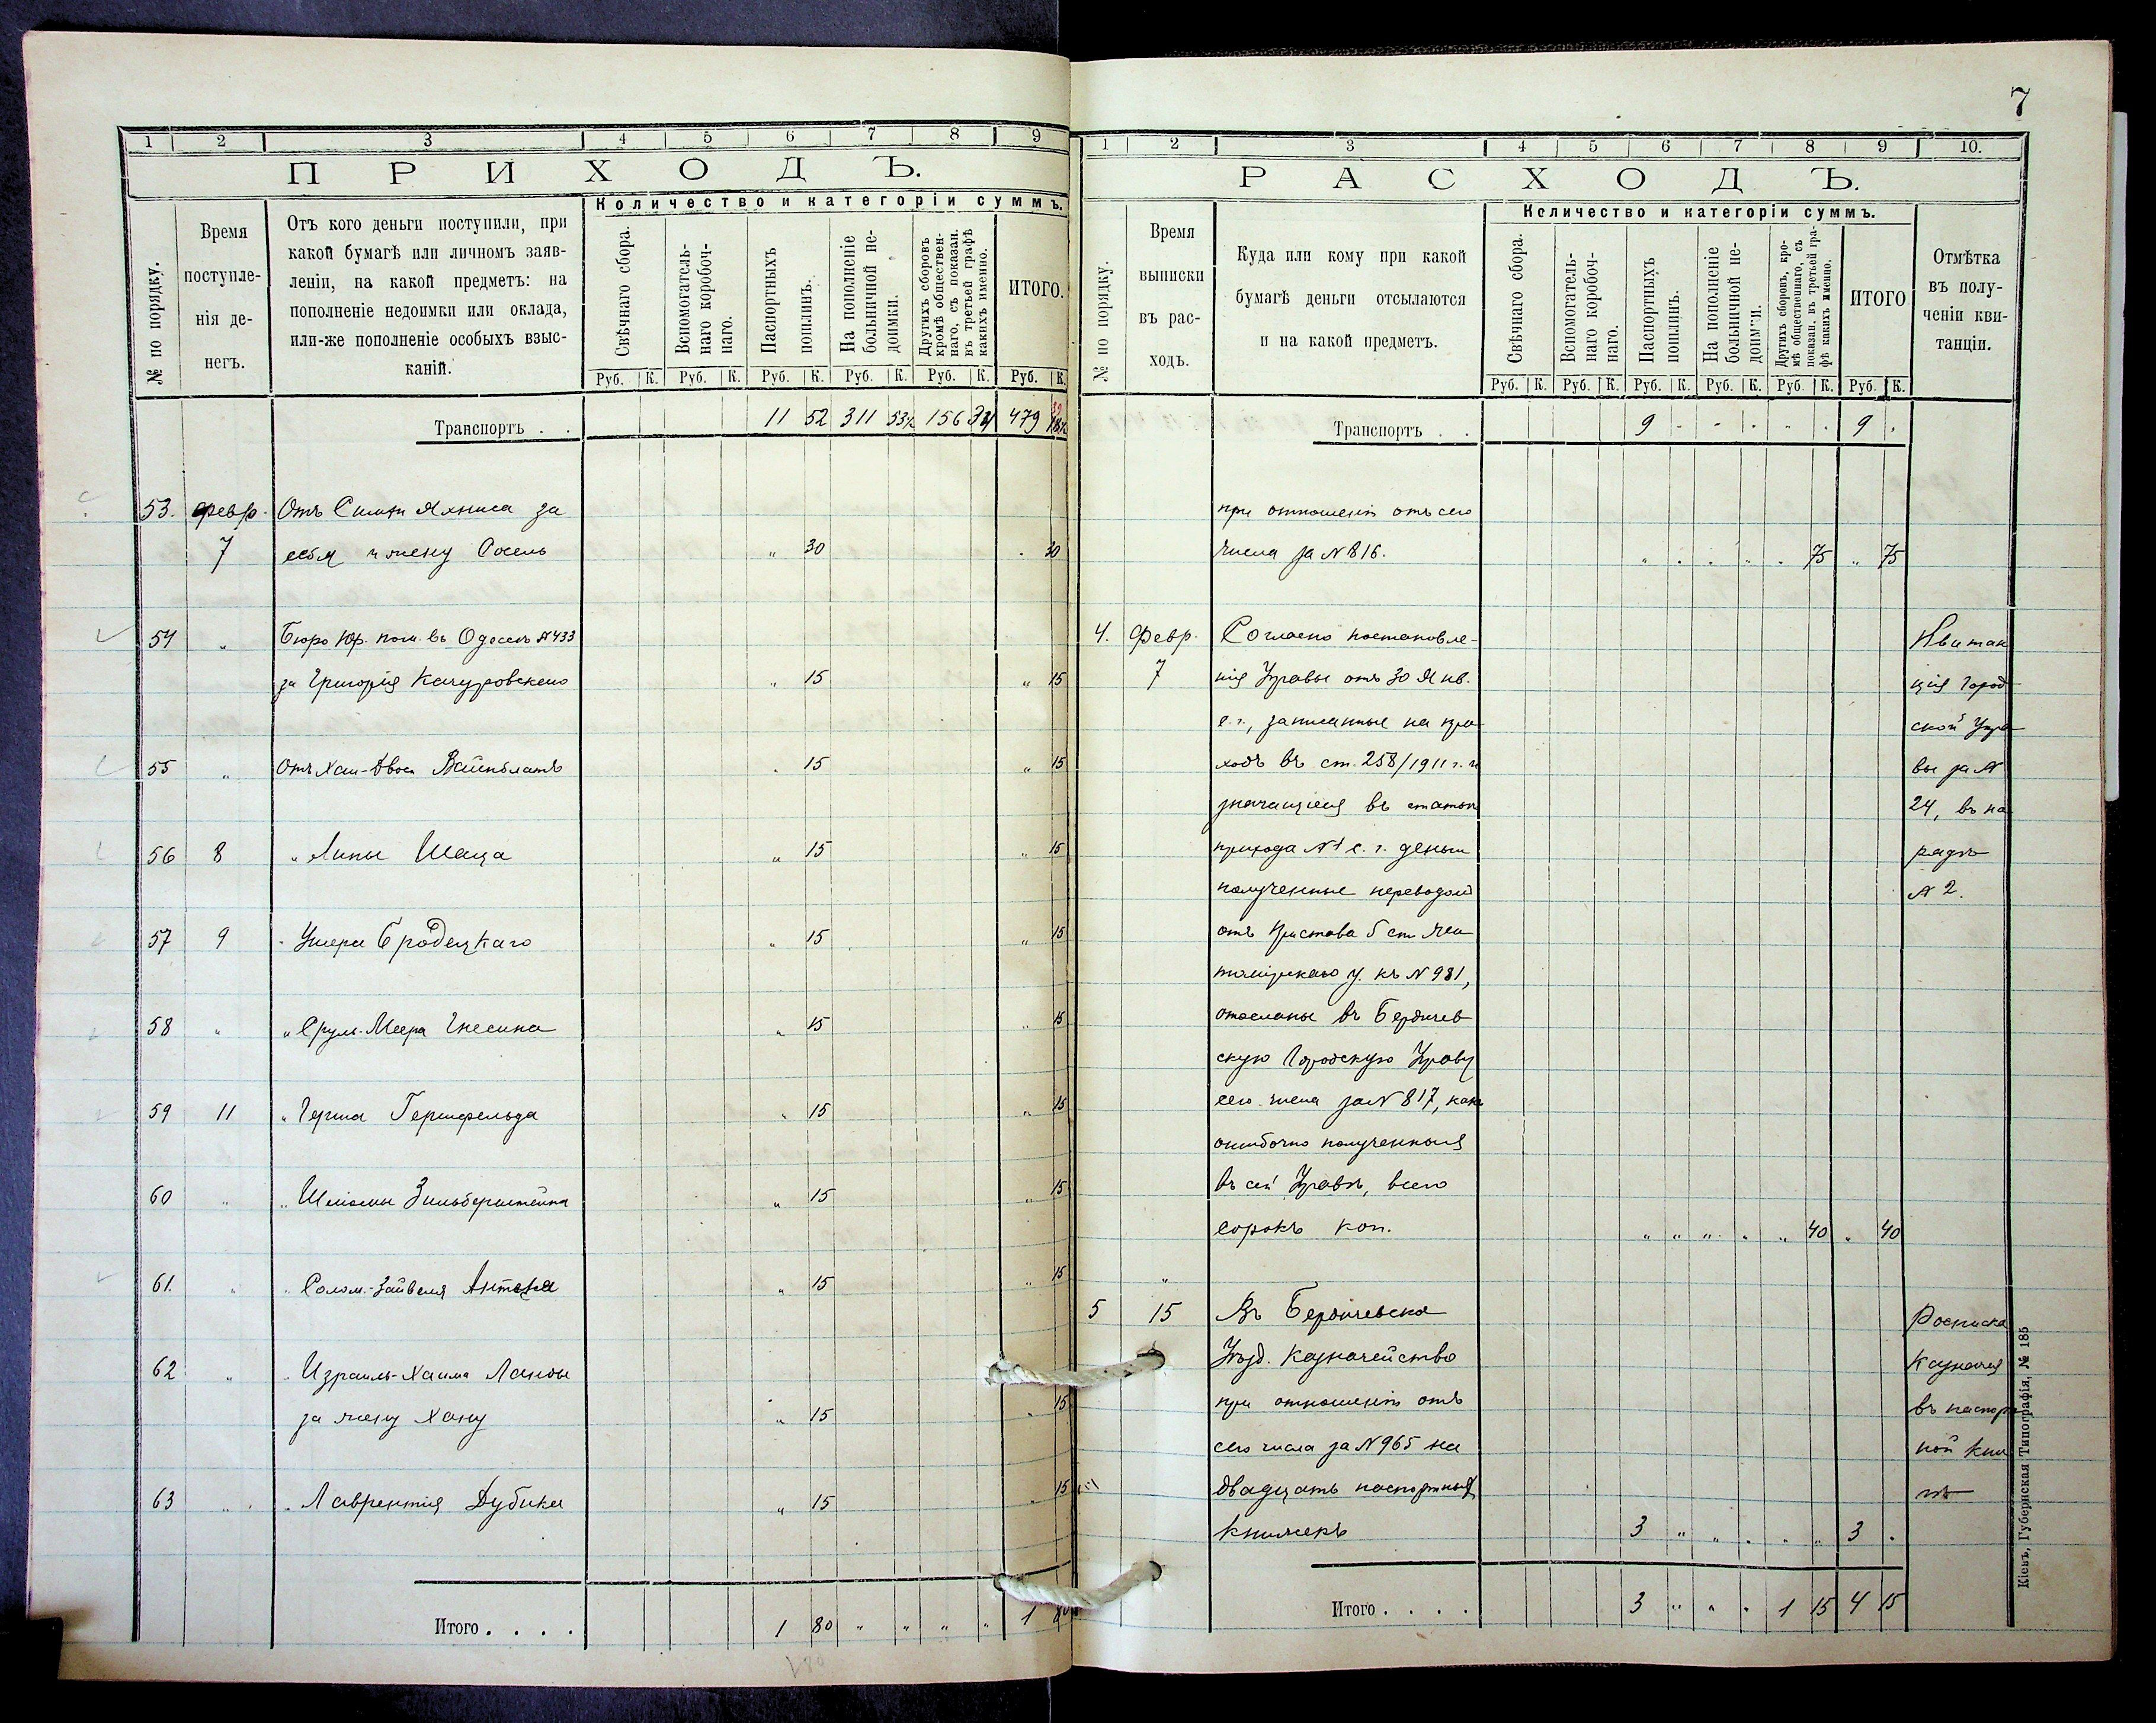 7
1 2 3 4 5 6 7 8 9
ПРИХОДЪ.
№ по порядку.
Время
поступле-
нія де-
негъ.
Отъ кого деньги поступили, при
какой бумагѣ или личномъ заяв-
леніи, на какой предметъ: на
пополненіе недоимки или оклада,
или-же пополненіе особыхъ взыс-
каній.
Количество и категоріи суммъ.
Свѣчнаго сбора.
Вспомогатель-
наго коробоч-
наго.
Паспортныхъ
пошлинъ.
На пополненіе
больничной не-
доимки.
Другихъ сборовъ
кромѣ обществен-
наго, съ показан.
въ третьей графѣ
какихъ именно.
ИТОГО.
Руб. К. Руб. К. Руб. К. Руб. К. Руб. К. Руб. К.
Транспортъ . . 11 52 311 53½ 156 34 479
53. Февр. Отъ за
7 себя и жену " 30 . 30
54 " Бюро Юр. пом. въ Одессѣ №433
за Григорія Качуровскаго " 15 " 15
55 " Отъ Вайнблатъ . 15 " 15
56 8 " Липы Шаца " 15 " 15
57 9 " Ушера Бродецкаго " 15 " 15
58 " " Сруль-Меера Гнесина " 15 " 15
59 11 " Герша Гершфельда " 15 " 15
60 " " Шлиомы Зильберштейна " 15 " 15
61. " " Солом.-Зайвеля " 15 " 15
62 " " Израиль-Хаима Ланды
за жену Хану " 15 " 15
63 " " Лаврентія Дубика " 15 " 15
Итого . . . . 1 80 " " " " 1 80
1 2 3 4 5 6 7 8 9 10.
РАСХОДЪ.
№ по порядку.
Время
выписки
въ рас-
ходъ.
Куда или кому при какой
бумагѣ деньги отсылаются
и на какой предметъ.
Количество и категоріи суммъ.
Свѣчнаго сбора.
Вспомогатель-
наго коробоч-
наго.
Паспортныхъ
пошлинъ.
На пополненіе
больничной не-
доимки.
Другихъ сборовъ, кро-
мѣ общественнаго, съ
показан. въ третьей гра-
фѣ какихъ именно.
ИТОГО
Отмѣтка
въ полу-
ченіи кви-
танціи.
Руб. К. Руб. К. Руб. К. Руб. К. Руб. К. Руб. К.
Транспортъ . . 9 - - . - . 9 .
при отношеніи отъ сего
числа за №816. " . . " . 75 " 75
4. Февр. Согласно постановле-
7 нія Управы отъ 30 Янв.
с. г., записанные на при-
ходъ въ ст. 258/1911 г. и
значащіеся въ статьѣ
прихода №1 с. г. деньги
полученные переводомъ
отъ Пристава 5 ст. Жи-
томірскаго у. къ №981,
отосланы въ Бердичев
скую Городскую Управу
сего числа за №817, какъ
ошибочно полученныя
въ сей Управѣ, всего
сорокъ коп. " " " " " 40 " 40
Квитан
ція Город
ской Упра
вы за №
24, въ на
рядѣ
№ 2.
5 15 Въ Бердичевское
Уѣзд. Казначейство
при отношеніи отъ
сего числа за №965 на
двадцать паспортныхъ
книжекъ 3 " " . " " 3 .
Росписка
Казначея
въ паспорт
ной кни
гѣ
Итого . . . . 3 " " . 1 15 4 15
Кіевъ, Губернская Типографія, № 185